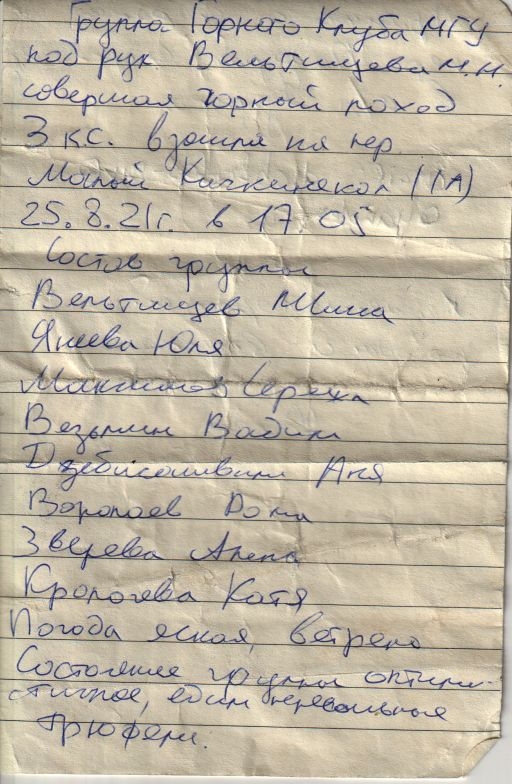 Группа Горного Клуба МГУ
под рук Вельтищева М.Н.
совершая горный поход
3 к.с. взошла на пер.
Малый Кичкинекол (1А)
25.8.21г. в 17.05
Состав группы
Вельтищев Миша
Янева Юля
Максимов Сережа
Везьмин Вадим
Аня
Воропаев Рома
Зверева Алена
Катя
Погода ясная, ветрено
Состояние группы оптими-
стичное, едим перевальные
трюфели.